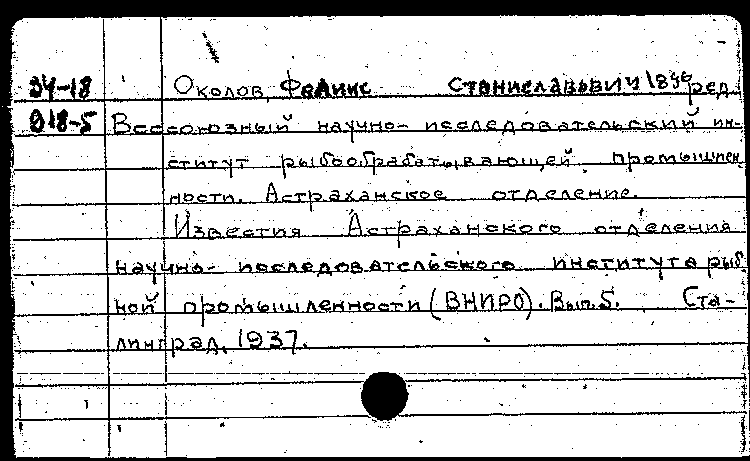 34-18 Околов, Феликс Станиславович 1896 ред.
018-5 Всесоюзный научно-исследовательский ин-
ститут рыбообрабатывающей промышлен
ности. Астраханское отделение.
Известия Астраханского отделения
научно-исследовательского института рыб
ной промышленности (ВНИРО). Вып. 5. Ста-
линград, 1937.